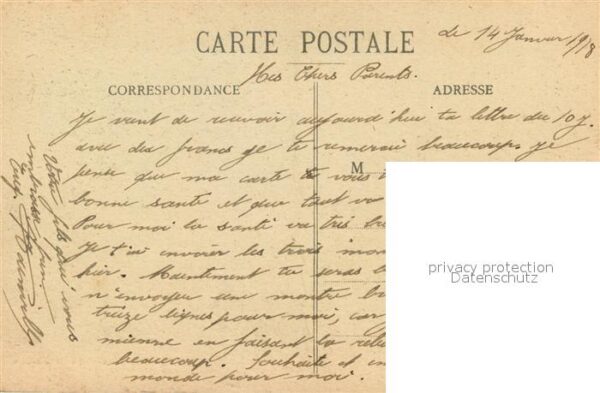 CARTE POSTALE
le 14 Janvier 1918
Mes Chers Parents.
CORRESPONDANCE
ADRESSE
Je vient de recevoir aujourd'hui ta lettre du 10 J.
avec des francs je te remerci beaucoup. Je
M
pense que ma carte te vous
bonne santé et que tout va
Pour moi la santé va très
Je t'ai envoiër les trois
hier. Maintement tu seras
n'envoyer une montre
treize lignes pour moi, car
mienne en faisant la
beaucoup. Souhaite
monde pour moi.
Votre fils qui vous
embrasse
privacy protection
Datenschutz